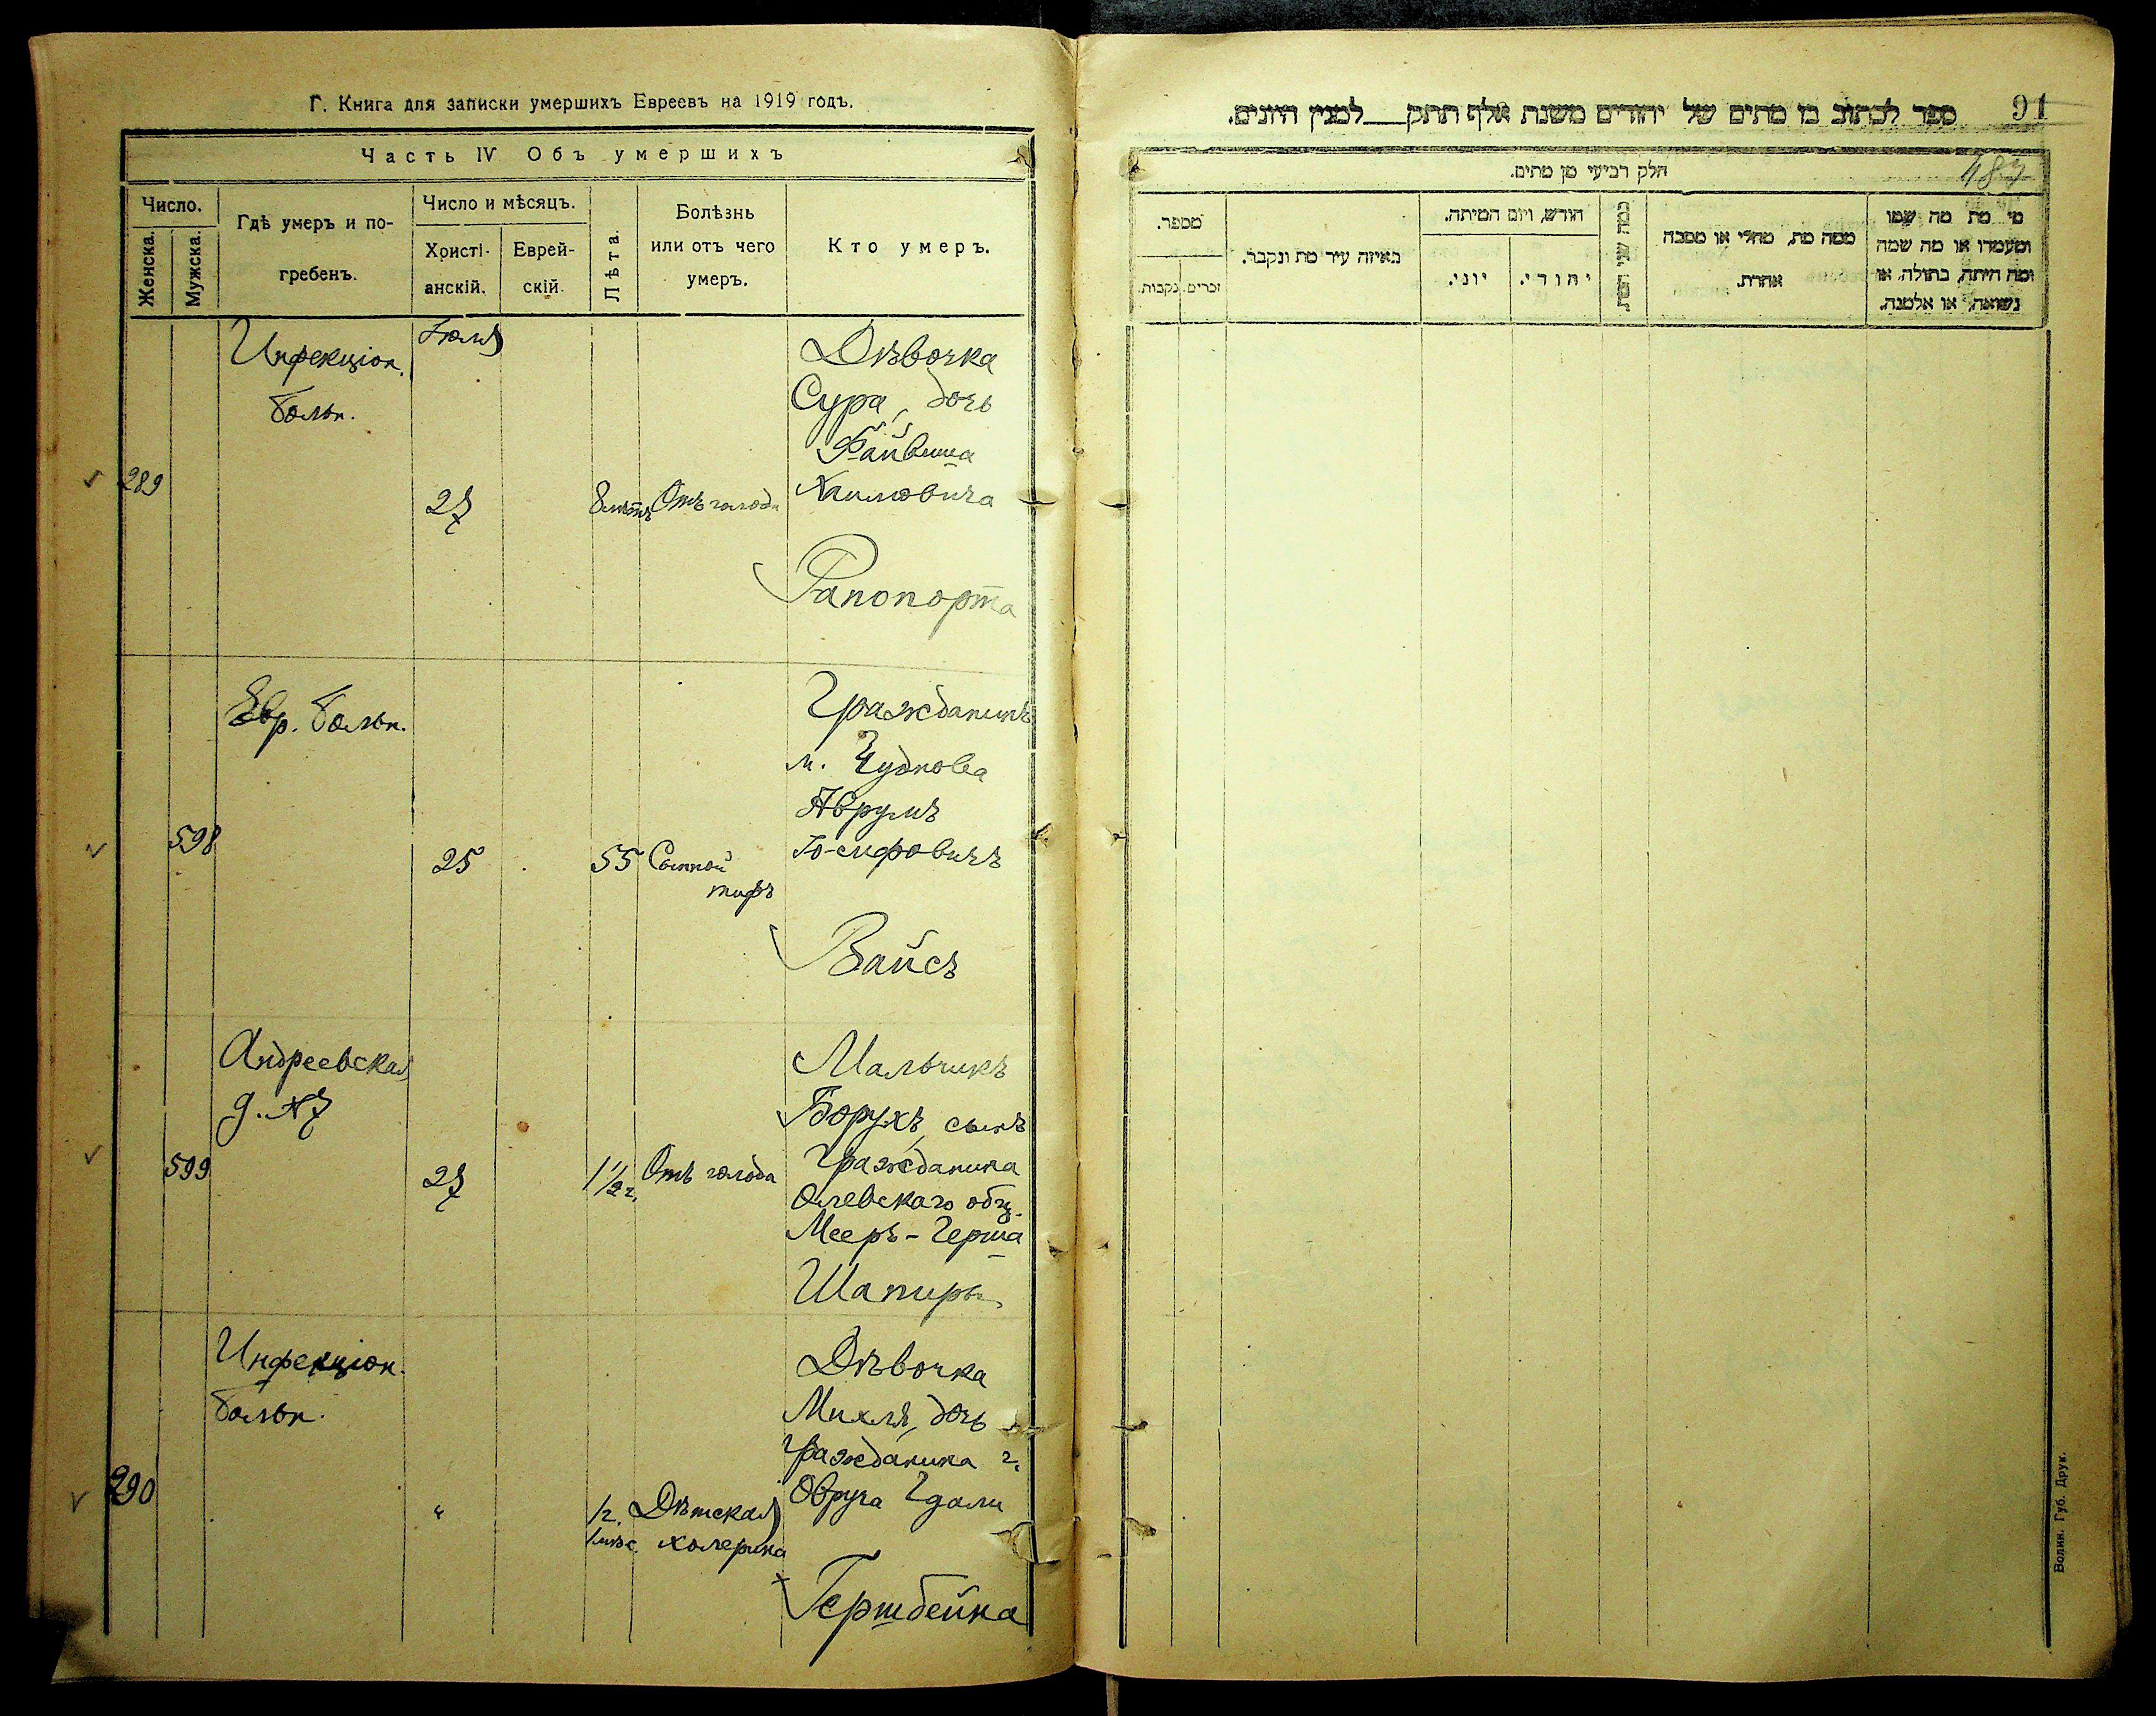 Г. Книга для записки умершихъ Евреевъ на 1919 годъ.
Часть IV Объ умершихъ
Число.
Женска.
Мужска.
Гдѣ умеръ и по-
гребенъ.
Число и мѣсяцъ.
Христі-
анскій.
Еврей-
скій.
Лѣта.
Болѣзнь
или отъ чего
умеръ.
Кто умеръ.
289
Инфекціон.
больн.
Іюля
27
8 лѣтъ
Отъ голода
Дѣвочка
Сура, дочь
Файвиша
Хаимовича
Рапопорта
598
Евр. больн.
25
55
Сыпной
тифъ
Гражданинъ
м. Чуднова
Аврумъ
Іосифовичъ
Вайсъ
599
Андреевская
д. №7
27
1 1/2 г.
Отъ голода
Мальчикъ
Борухъ, сынъ
Гражданина
Олевскаго общ.
Мееръ-Герша
Шапиры
290
Инфекціон.
больн.
"
1 г.
1 мѣс.
Дѣтская
холерина
Дѣвочка
Михля, дочь
Гражданина г.
Овруча Гдали
Герштейна
91
ספר לכתוב בו מתים של יהודים משנת אלף תתק למנין היונים.
187
חלק רביעי מן מתים.
מספר.
זכרים.
נקבות.
באיזה עיר מת ונקבר.
חודש, ויום המיתה.
יוני.
יהודי.
ממה מת, מחלי או מסבה
אחרת.
מי מת מה שמו
ומעמדו או מה שמה
ומה היתה, בתולה, או
נשואה, או אלמנה.
Волин. Губ. Друк.